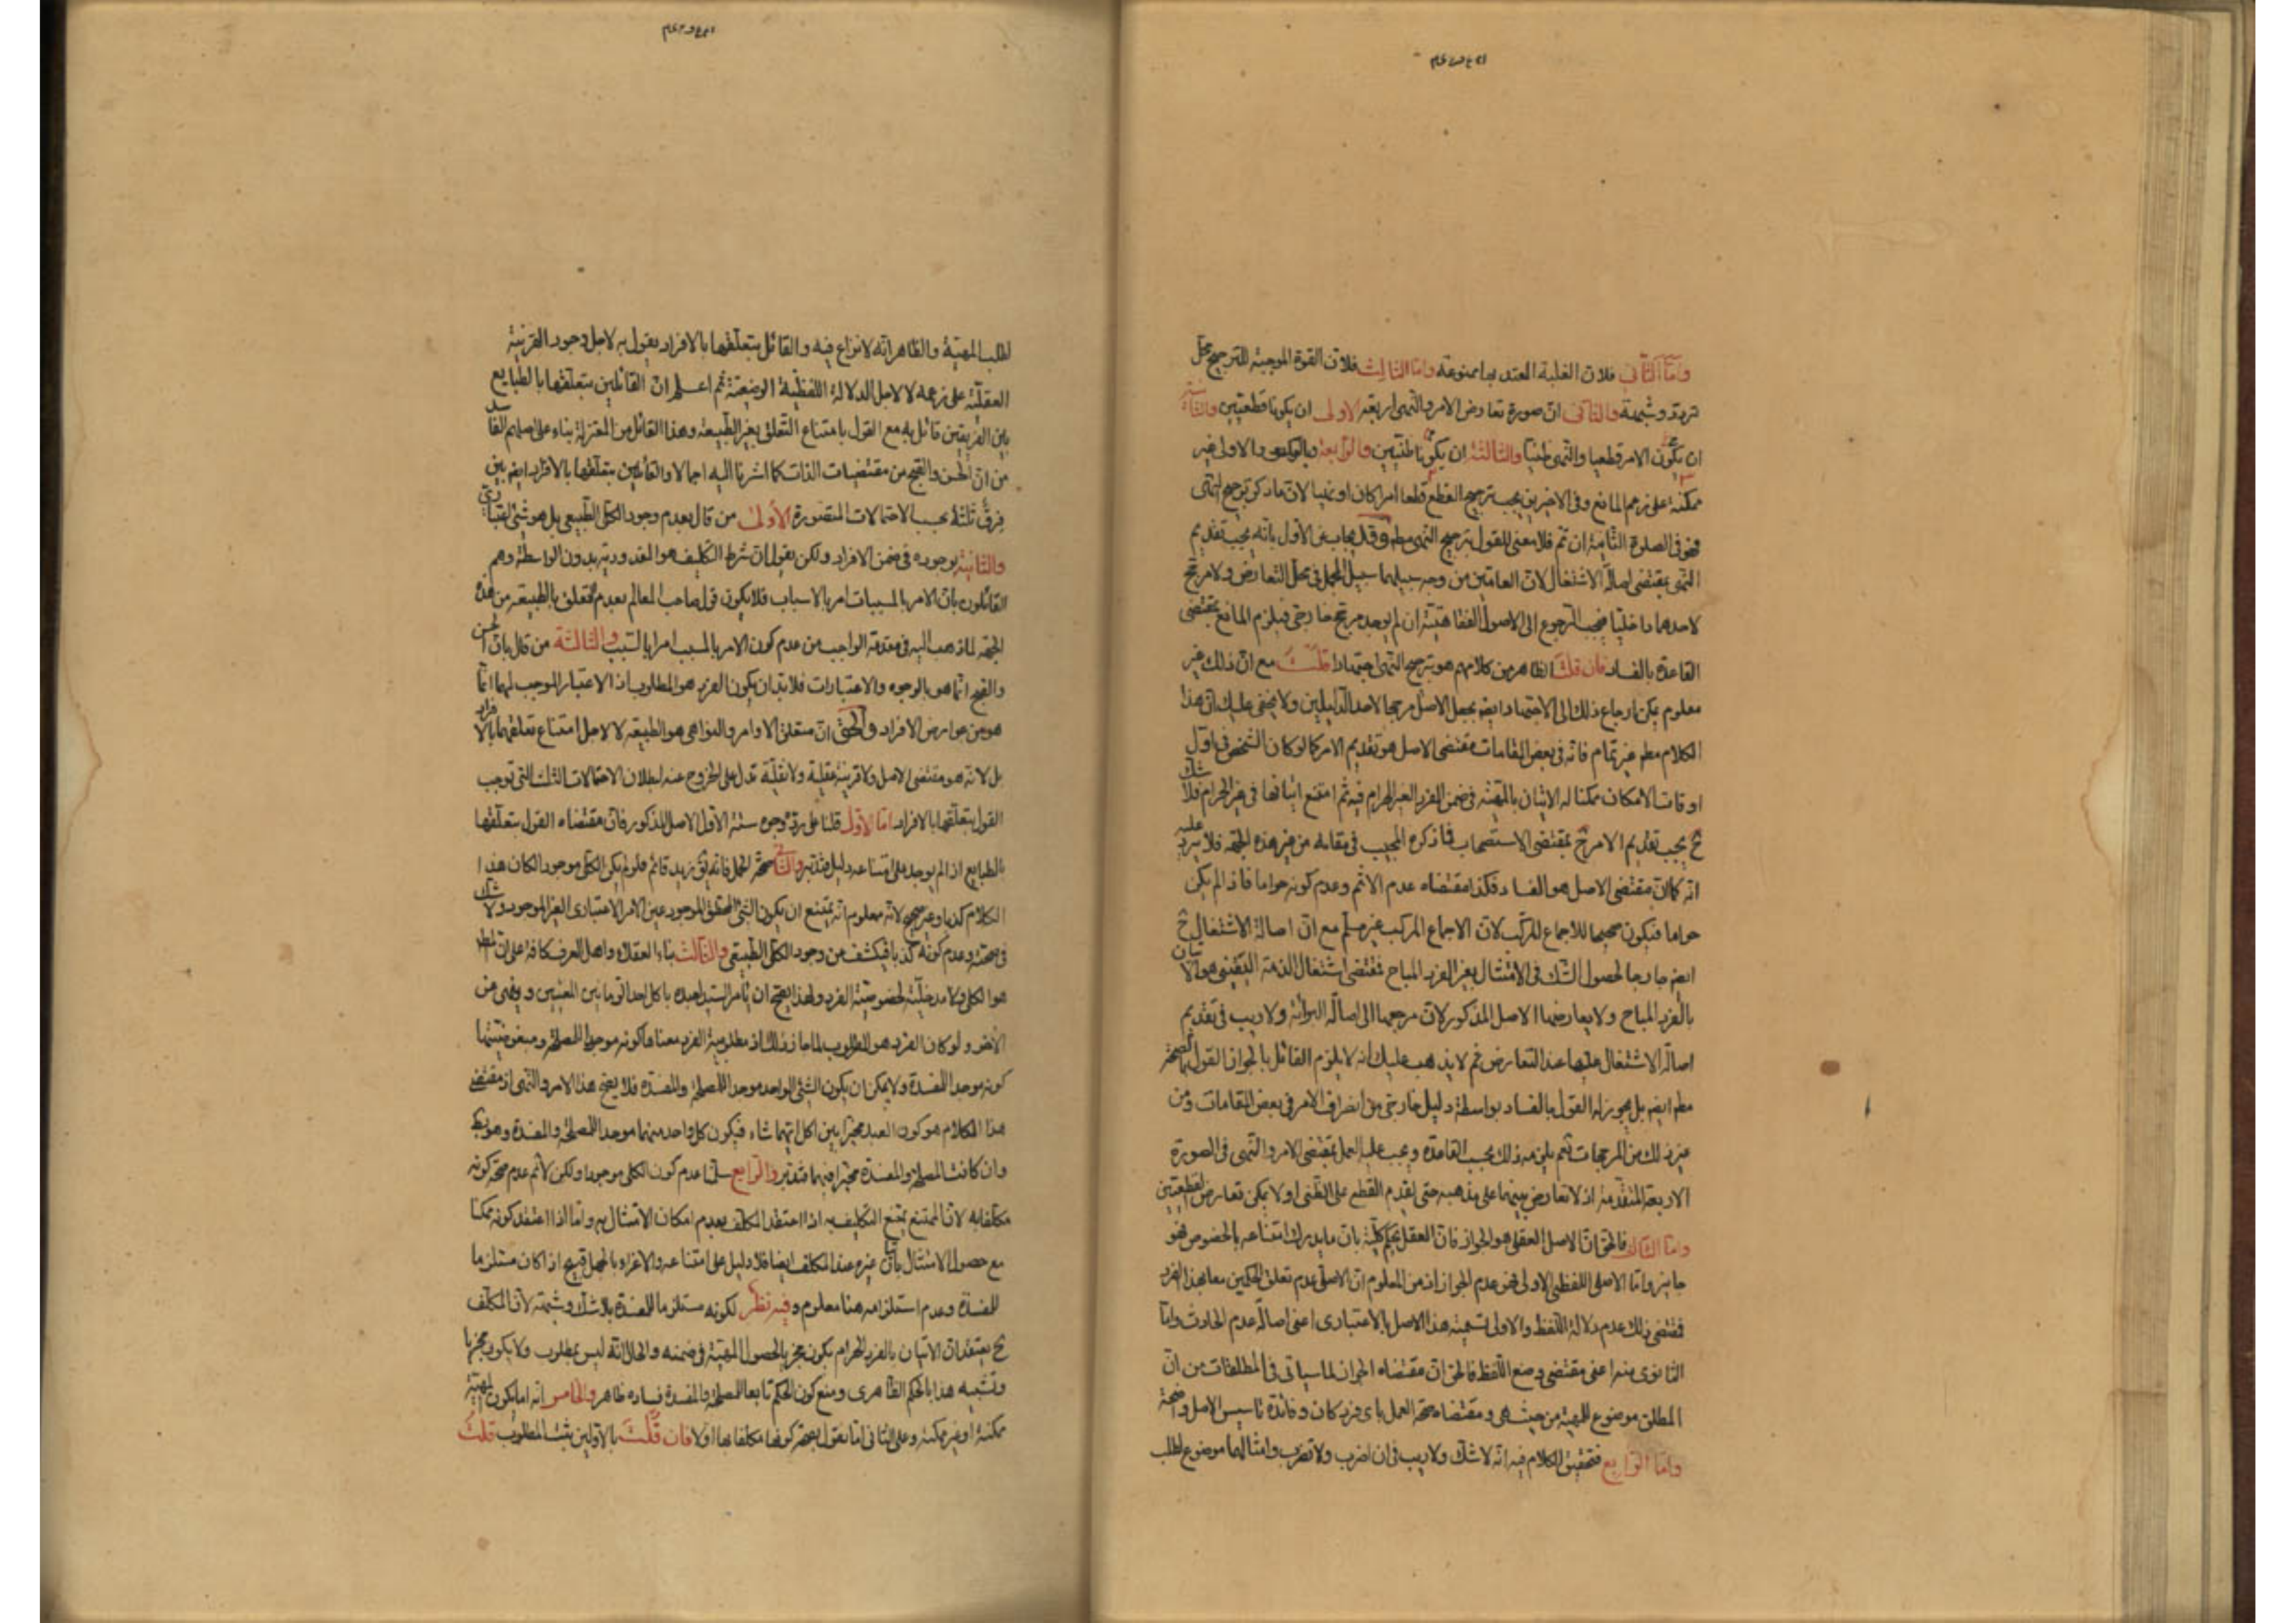 واما الثاني فلان الغلبة المعتد بها ممنوعة واما الثالث فلان القوة الموجبة للترجيح محل
تردد وشبهة والثاني ان صورة تعارض الامر والنهى اربعة الاولى ان يكونا قطعيين والثانية
ان يكون الامر قطعيا والنهى ظنيا والثالثة ان يكونا ظنيين والرابعة وبالعكس والاولى غير
ممكنة على زعم المانع وفى الاخيرين يجب ترجيح القطع قطعا امرا كان او نهيا لان ما ذكر ترجيح النهى
فهو فى الصورة الثانية ان تم فلا معنى للقول بترجيح النهى مطم وقد يجاب عن الاول بانه يجب تقديم
النهى بمقتضى اصالة الاشتغال لان العامين من وجه سبيلهما سبيل المجمل فى محل التعارض ولا مرجح
لاحدهما داخليا فيجب الرجوع الى الاصول الفقاهتية ان لم يوجد مرجح خارجى فيلزم المانع بمقتضى
القاعدة بالفساد فان قلت الظاهر من كلامهم هو ترجيح النهى اجتهادا قلت مع ان ذلك غير
معلوم يمكن ارجاع ذلك الى الاجتهاد ايضا بجعل الاصل مرجحا لاحد الدليلين ولا يخفى عليك ان هذا
الكلام مطم غير تمام فانه فى بعض المقامات مقتضى الاصل هو تقديم الامر كما لو كان الشخص فى اول
اوقات الامكان ممكنا له الاتيان بالمهية فى ضمن الفرد الغير الحرام فيه ثم امتنع اتيانها فى غير الحرام فلا شك
ح يجب تقديم الامر ح بمقتضى الاستصحاب فما ذكره المجيب فى مقامه من غير هذه الجهة فلا يرد عليه
انه كما ان مقتضى الاصل هو الفساد فكذا مقتضاه عدم الاثم وعدم كونه حراما فاذا لم يكن
حراما فيكون صحيحا للاجماع المركب لان الاجماع المركب غير مسلم مع ان اصالة الاشتغال ح
ايضا جارية لحصول الشك فى الامتثال بغير الفرد المباح فمقتضى اشتغال الذمة اليقينى هو الاتيان
بالفرد المباح ولا يعارضها الاصل المذكور لان مرجعها الى اصالة البرائة ولا ريب فى تقديم
اصالة الاشتغال عليها عند التعارض ثم لا يذهب عليك انه لا يلزم القائل بالجواز القول بالصحة
مطم ايضا بل يجوز له القول بالفساد بواسطة دليل خارجى من انصراف الامر فى بعض المقامات ومن
غير ذلك من المرجحات نعم يلزمه ذلك بحسب القاعدة ويجب عليه العمل بمقتضى الامر والنهى فى الصورة
الاربعة المتقدمة اذ لا تعارض بينهما على مذهبه حتى يقدم القطع على الظنى او لا يمكن تعارض القطعيين
واما الثالث فالحق ان الاصل العقلى هو الجواز فان العقل يحكم كلية بان ما يدرك امتناعه بالخصوص فهو
جايز واما الاصل اللفظى الاولى فهو عدم الجواز اذ من المعلوم ان الاصل عدم تعلق الحكمين معا بهذا الفرد
فمقتضى ذلك عدم دلالة اللفظ والاولى تسمية هذا الاصل بالاعتبارى اعنى اصالة عدم الحادث واما
الثانوى منه اعنى مقتضى وضع اللفظ فالحق ان مقتضاه الجواز لما سياتى فى المطلقات من ان
المطلق موضوع للمهية من حيث هى ومقتضاه صحة العمل باى فرد كان وفائدة تاسيس الاصل واضحة
واما الرابع فتحقيق الكلام فيه انه لا شك ولا ريب فى ان اضرب ولا تضرب وامثالهما موضوع لطلب
لطلب المهية والظاهر انه لا نزاع فيه والقائل بتعلقها بالافراد يقول به لاجل وجود القرينة
العقلية على زعمه لا لاجل الدلالة اللفظية الوضعية ثم اعلم ان القائلين بتعلقها بالطبايع
بين الفريقين قائل به مع القول بامتناع التعلق بغير الطبيعة وهذا القائل من المعتزلة بناء على اصلهم الفاسد
من ان الحسن والقبح من مقتضيات الذات كما اشرنا اليه اجمالا والقائلين بتعلقها بالافراد ايضا بين
فرق ثلثة بحسب الاحتمالات المتصورة الاولى من قال بعدم وجود الكلى الطبيعى بل هو شئ
والثانية بوجوده فى ضمن الافراد ولكن يقول ان شرط التكليف هو المقدورية بدون الواسطة وهم
القائلون بان الامر بالمسببات امر بالاسباب فلا يكون قول صاحب المعالم بعدم التعلق بالطبيعة من هذه
الجهة لما ذهب اليه فى مقدمة الواجب من عدم كون الامر بالمسبب امرا بالسبب والثالثة من قال بان الحسن
والقبح انما هو بالوجوه والاعتبارات فلا بد ان يكون الفرد هو المطلوب اذ الاعتبار الموجب لهما انما
هو من عوارض الافراد والحق ان متعلق الاوامر والنواهى هو الطبيعة لا لاجل امتناع تعلقهما بالافراد
بل لانه هو مقتضى الاصل ولا قرينة عقلية ولا نقلية تدل على الخروج عنه لبطلان الاحتمالات الثلث التى توجب
القول بتعلقها بالافراد اما الاول قلنا على رده وجوه ستة الاول الاصل المذكور فان مقتضاه القول بتعلقها
بالطبايع اذ لم يوجد على امتناعه دليل فتدبر والثانى صحة الحمل فانه يق زيد قائم فلو لم يكن الكلى موجودا لكان هذا
الكلام كذبا وغير صحيح لانه معلوم انه يمتنع ان يكون الشئ المحقق الموجود عين الامر الاعتبارى الغير الموجود ولا شك
فى صحته وعدم كونه كذبا فيكشف من وجود الكلى الطبيعى والثالث بناء العقلاء واهل العرف كافة على ان المط
هو الكلى ولا مدخلية لخصوصية الفرد ولهذا يصح ان يامر السيد لعبده باكل احد من العنبين وينهى عن
الاخر ولو كان الفرد هو المطلوب لما جاز ذلك اذ مطلوبية الفرد معناها كونه موجدا للمصلحة ومبغوضيتها
كونه موجدا للمفسدة ولا يمكن ان يكون الشئ الواحد موجدا للمصلحة والمفسدة فلا يصح هذا الامر والنهى اذ مقتضى
هذا الكلام هو كون العبد مخيرا بين اكل ايهما شاء فيكون كل واحد منهما موجدا للمصلحة والمفسدة وهو بط
وان كانت المصلحة والمفسدة مخيرا فيهما فتدبر والرابع سلمنا عدم كون الكلى موجودا ولكن لانم عدم صحة كونه
مكلفا به لان الممتنع يمتنع التكليف به اذا اعتقد المكلف بعدم امكان الامتثال به واما اذا اعتقد كونه ممكنا
مع حصول الامتثال باتيان غيره عند المكلف ايضا فلا دليل على امتناعه والاغراء بالجهل قبيح اذا كان مستلزما
للمفسدة وعدم استلزامه هنا معلوم وفيه نظر لكونه مستلزما للمفسدة بلا شك وشبهة لان المكلف
ح يعتقد ان الاتيان بالفرد الحرام يكون مجزيا لحصول المهية فى ضمنه والحال انه ليس بمطلوب ولا يكون مجزيا
وتشبيه هذا بالحكم الظاهرى ومنع كون الحكم تابعا للمصلحة والمفسدة فساده ظاهر والخامس انه اما يكون المهية
ممكنة او غير ممكنة وعلى الثانى اما نقول بصحة كونها مكلفا بها اولا فان قلت بالاولين يثبت المطلوب قلت